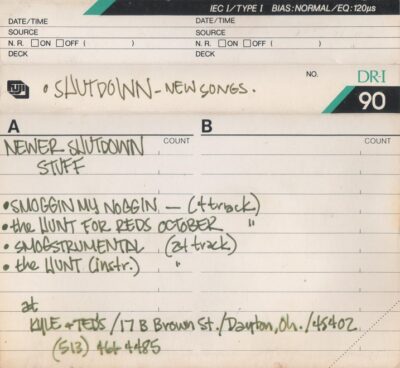 IEC I/TYPE I BIAS: NORMAL/EQ: 120µs
DATE/TIME
DATE/TIME
SOURCE
SOURCE
N. R. ☐ ON ☐ OFF ( )
N. R. ☐ ON ☐ OFF ( )
DECK
DECK
FUJI
• SHUTDOWN - NEW SONGS.
NO.
DR-I
90
A
B
COUNT
COUNT
NEWER SHUTDOWN
STUFF
• SMOGGIN MY NOGGIN — (4 track)
• the HUNT FOR REDS OCTOBER "
• SMOGSTRUMENTAL (24 track)
• the HUNT (instr.) "
at
KYLE + TEDS / 17 B Brown St. / Dayton, Oh. / 45402
(513) 461 4485